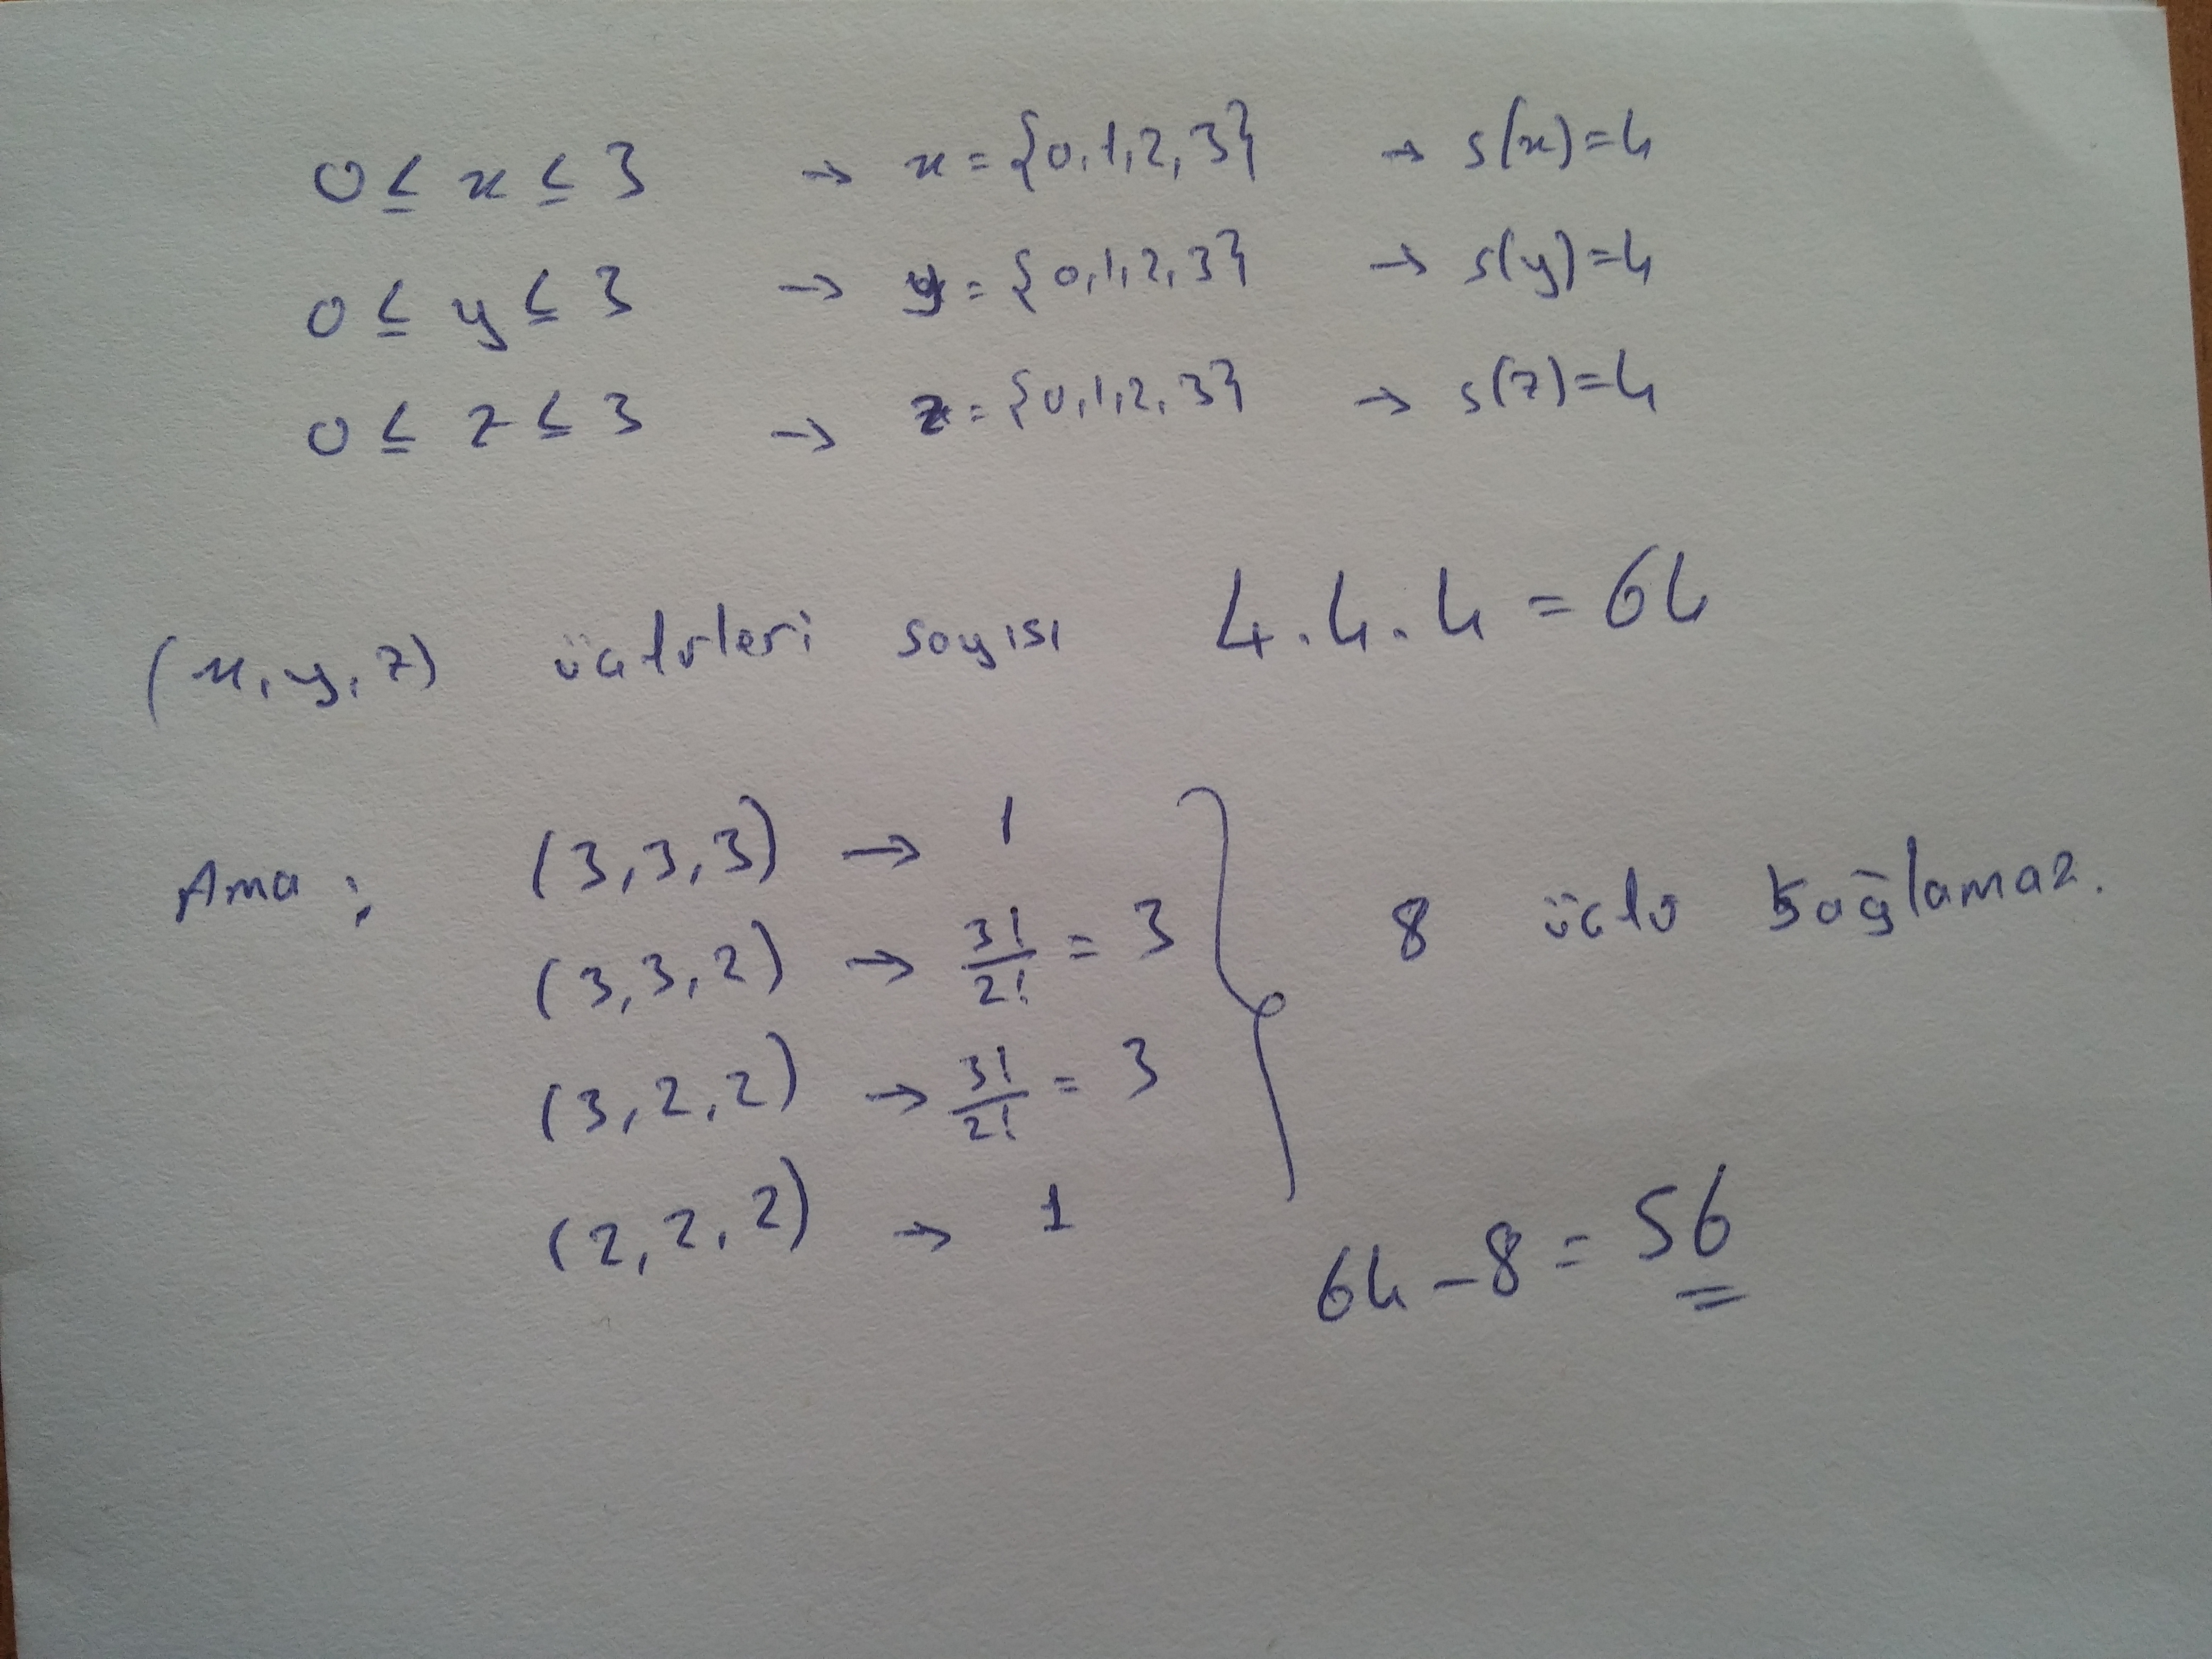 0 ≤ x ≤ 3 → x = {0,1,2,3} → s(x)=4
0 ≤ y ≤ 3 → y = {0,1,2,3} → s(y)=4
0 ≤ z ≤ 3 → z = {0,1,2,3} → s(z)=4
(x,y,z) üçlüleri sayısı 4.4.4 = 64
Ama ; (3,3,3) → 1
(3,3,2) → 3!/2! = 3
8 üçlü sağlamaz.
(3,2,2) → 3!/2! = 3
(2,2,2) → 1
64 - 8 = 56